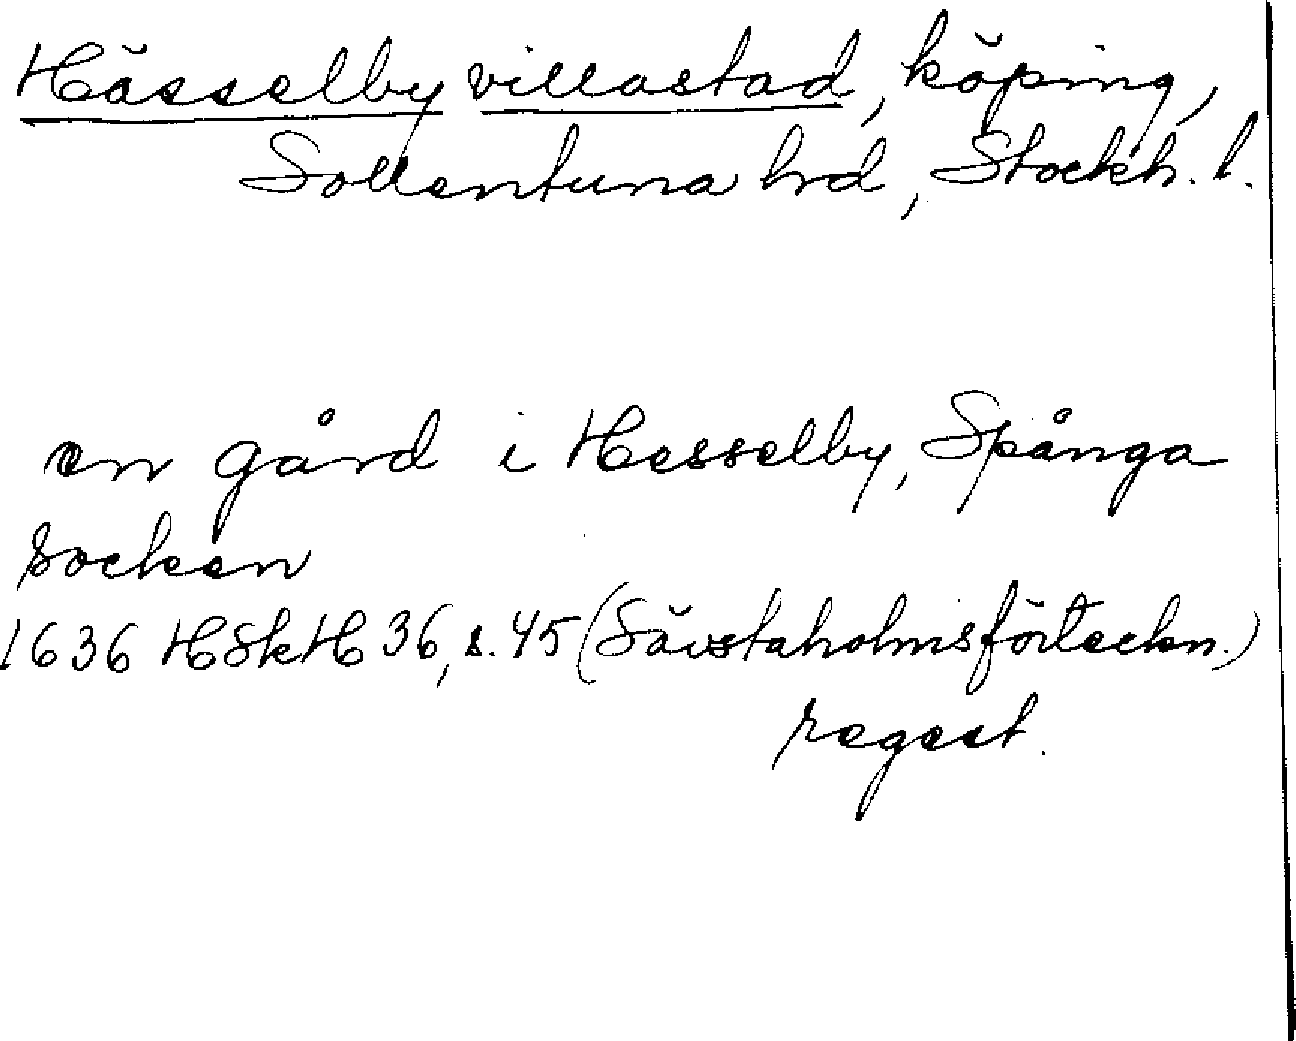 Hässelby villastad, köping,
Sollentuna hrd, Stockh. l.
en gård i Hesselby, Spånga
socken
1636 HSkH 36, s. 45 (Sävstaholmsförteckn.)
regest.